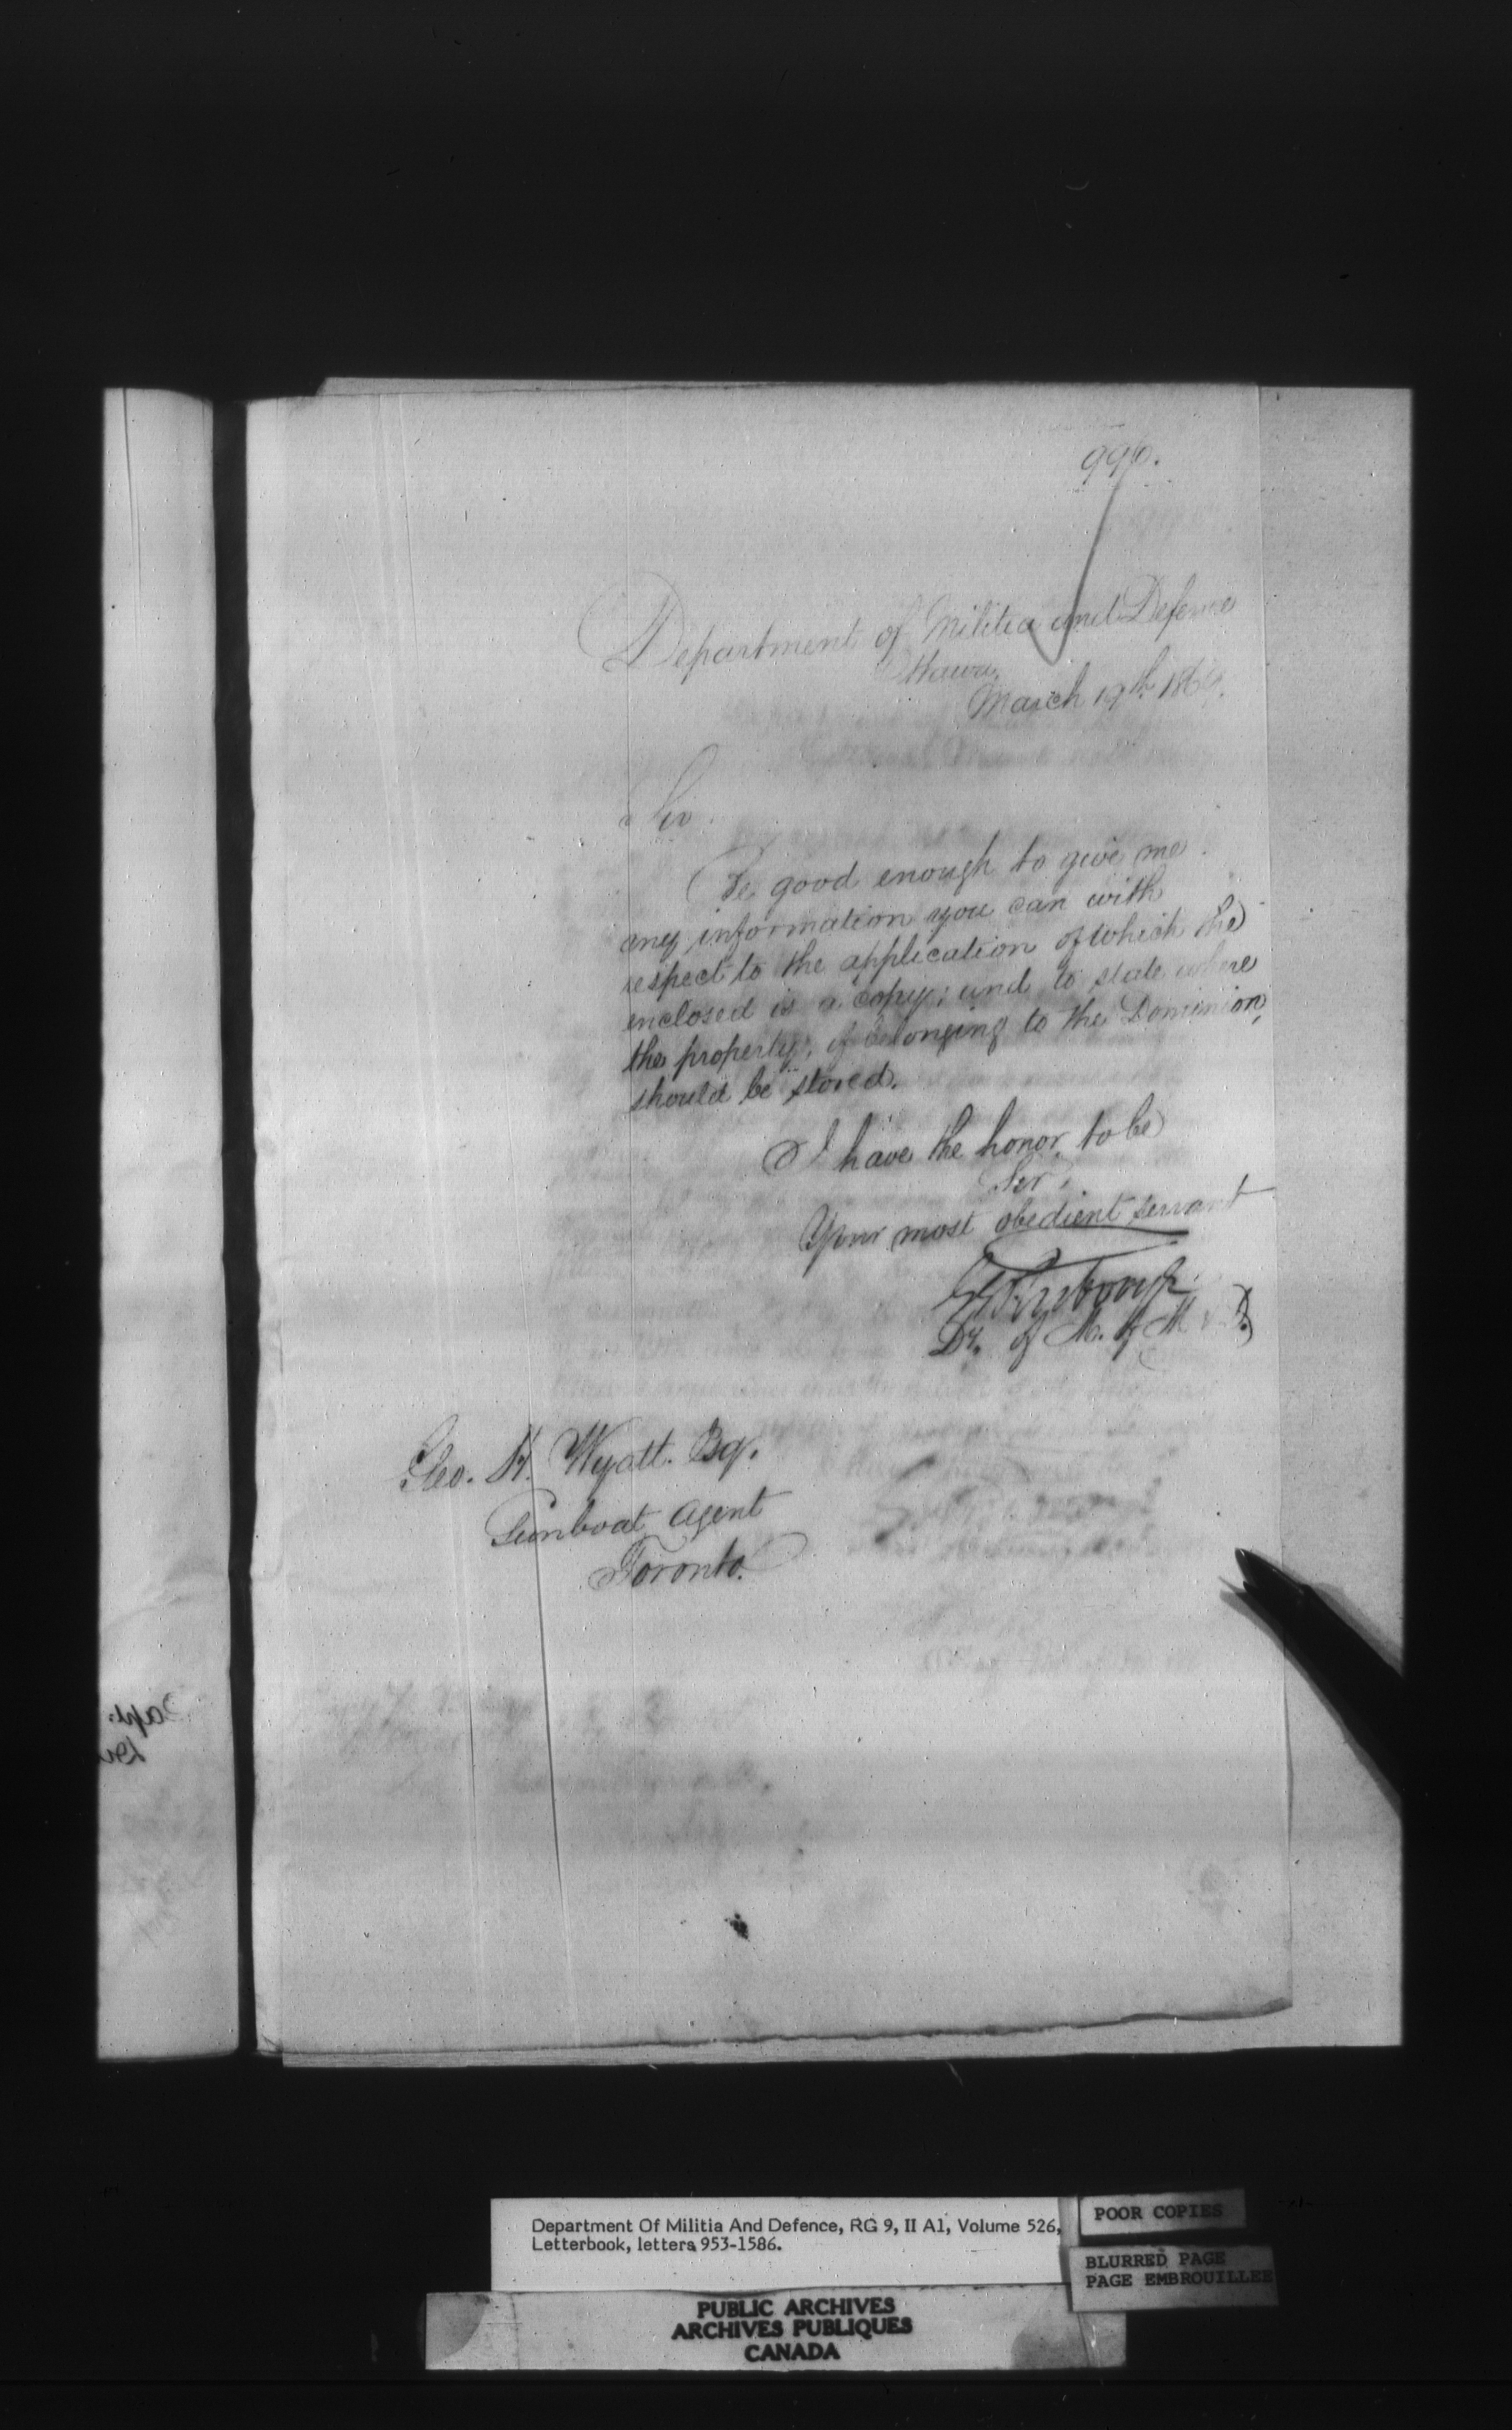 996.
Department of Militia and Defence
Ottawa,
March 19th 186
Sir.
Be good enough to give me
any information you can with
respect to the application of which the
enclosed is a copy; and to state where
the property, if belonging to the Dominion,
should be stored.
I have the honor to be
Sir,
Your most obedient servant
Dy. of M. of M & D
Geo. H. Wyatt. Esq.
Gunboat Agent
Toronto.
Department Of Militia And Defence, RG 9, II A1, Volume 526,
Letterbook, letters 953-1586.
POOR COPIES
BLURRED PAGE
PAGE EMBROUILLEE
PUBLIC ARCHIVES
ARCHIVES PUBLIQUES
CANADA